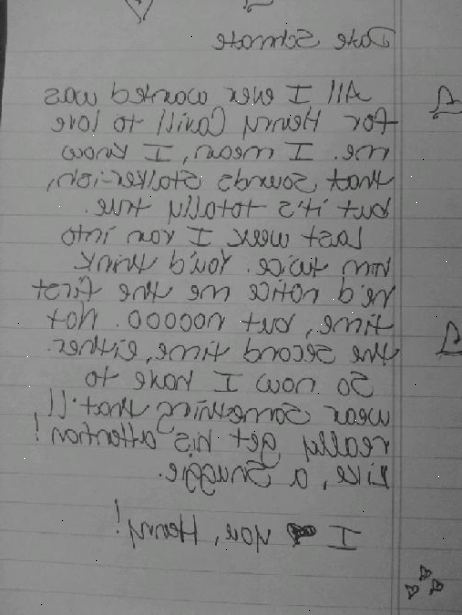 Date Schmate
All I ever wanted was
for Henry Cavill to love
me. I mean, I know
that sounds stalker-ish,
but it's totally true.
Last week I ran into
him twice. You'd think
he'd notice me the first
time, but nooooo. Not
the second time, either.
So now I have to
wear something that'll
really get his attention!
Like, a Snuggie.
I ♥ you, Henry!